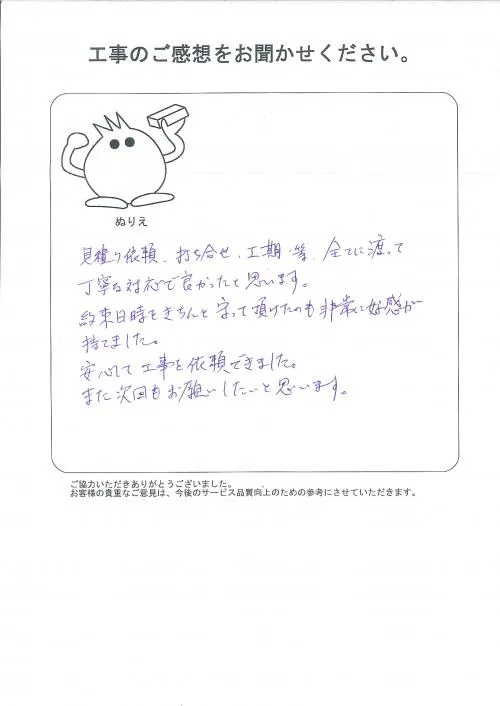 工事のご感想をお聞かせください。
ぬりえ
見積り依頼、打ち合せ、工期等、全てに渡って
丁寧な対応で良かったと思います。
約束日時をきちんと守って頂けたのも非常に好感が
持てました。
安心して工事を依頼できました。
また次回もお願いしたいと思います。
ご協力いただきありがとうございました。
お客様の貴重なご意見は、今後のサービス品質向上のための参考にさせていただきます。